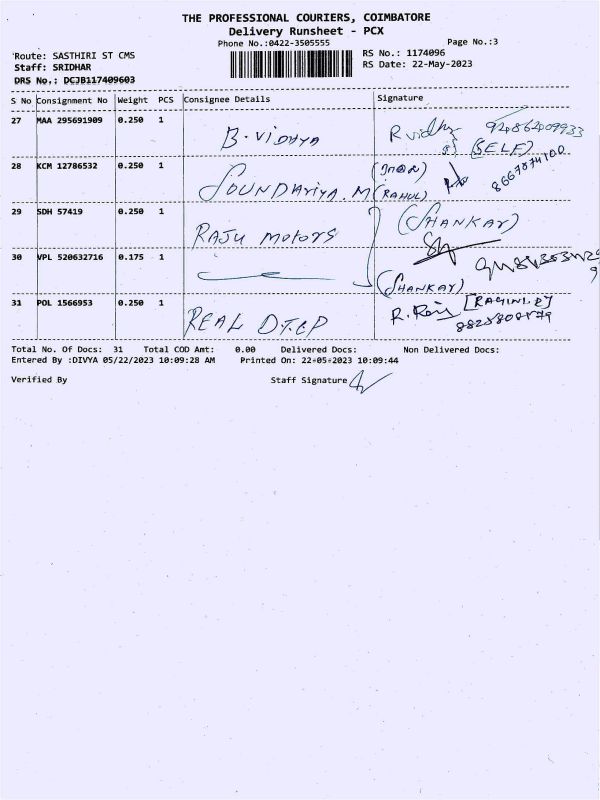 THE PROFESSIONAL COURIERS, COIMBATORE
Delivery Runsheet - PCX
Phone No.:0422-3505555
Page No.:3
Route: SASTHIRI ST CMS
RS No.: 1174096
Staff: SRIDHAR
RS Date: 22-May-2023
DRS No.: DCJB117409603
S No Consignment No Weight PCS Consignee Details Signature
27 MAA 295691909 0.250 1 B. VIDHYA R vidhy
(SELF)
28 KCM 12786532 0.250 1 SOUNDARIYA. M (RAHUL) 8667874100
29 SDH 57419 0.250 1 RAJU MOTORS (SHANKAR)
30 VPL 520632716 0.175 1 (SHANKAR)
31 POL 1566953 0.250 1 REAL D.T.C.P
Total No. Of Docs: 31 Total COD Amt: 0.00 Delivered Docs: Non Delivered Docs:
Entered By :DIVYA 05/22/2023 10:09:28 AM Printed On: 22-05-2023 10:09:44
Verified By Staff Signature